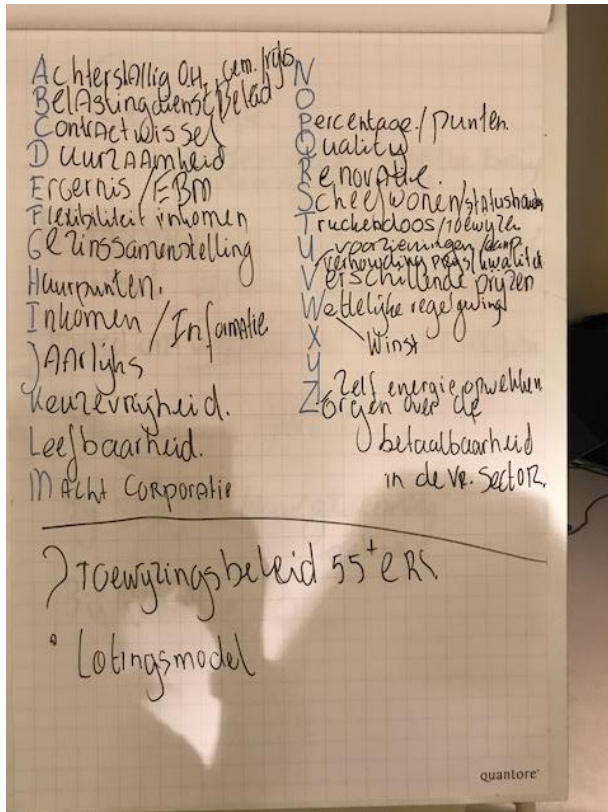 Achterstallig OH, gem./rijks
Belastingdienst/beleid
Contractwissel
Duurzaamheid
Ergernis / EBM
Flexibiliteit inkomen
Gezinssamenstelling
Huurpunten.
Inkomen / Informatie
Jaarlijks
Keuzevrijheid.
Leefbaarheid.
Macht Corporatie
N
O
Percentage / punten.
Quality
Renovatie.
Scheefwonen/statushouders
Truckendoos/toewyzen
U voorzieningen
verhouding prijs/kwaliteit
Verschillende pryzen
Wettelijke regelgeving
Winst
X
Y
Zelf energie opwekken
Zorgen over de
betaalbaarheid
in de VR. Sector.
Toewyzingsbeleid 55+ers
Lotingsmodel
quantore